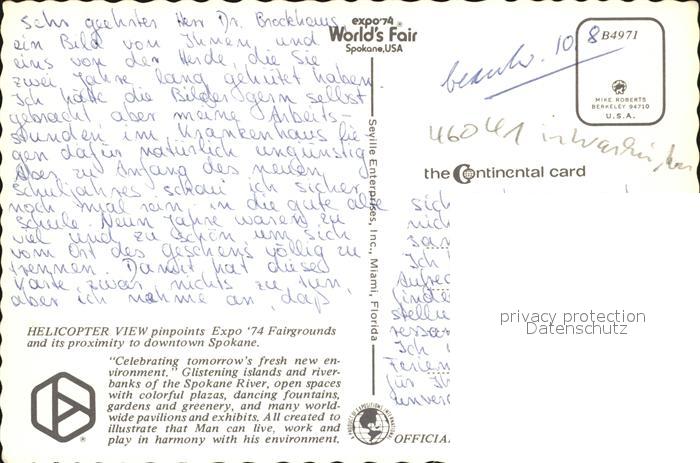 Sehr geehrter Herr Dr. Brockhaus,
ein Bild von Ihnen und
eins von der Herde, die Sie
zwei Jahre lang gehütet haben.
Ich hätte die Bilder gern selbst
gebracht aber meine Arbeits-
stunden im Krankenhaus lie-
gen dafür natürlich ungünstig
Aber zu Anfang des neuen
Schuljahres schau ich sicher
noch mal rein, in die gute alte
Schule. Neun Jahre waren zu
viel und zu schön, um sich
vom Ort des geschens völlig zu
trennen. Damit hat diese
Karte zwar nichts zu tun,
aber ich nehme an, daß
HELICOPTER VIEW pinpoints Expo '74 Fairgrounds
and its proximity to downtown Spokane.
"Celebrating tomorrow's fresh new en-
vironment." Glistening islands and river-
banks of the Spokane River, open spaces
with colorful plazas, dancing fountains,
gardens and greenery, and many world-
wide pavilions and exhibits. All created to
illustrate that Man can live, work and
play in harmony with his environment.
expo'74
World's Fair
Spokane, USA
Seville Enterprises, Inc., Miami, Florida
10. 8
B4971
MIKE ROBERTS
BERKELEY 94710
U.S.A.
46041
the Continental card
sich
nich
Ich
stellu
Ich
Ferien
für Ih
privacy protection
Datenschutz
OFFICIA